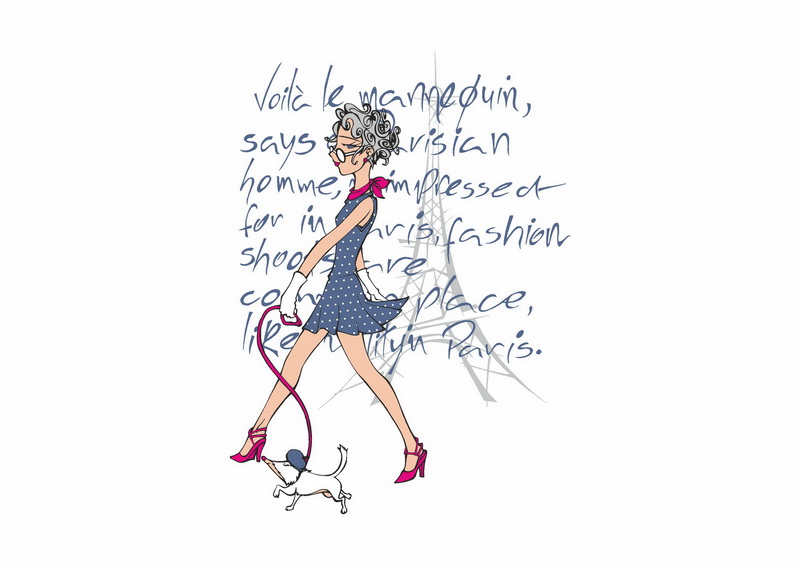 Voilà le mannequin,
says Parisian
homme, impressed
for in Paris, fashion
shoots are
place,
like Paris.